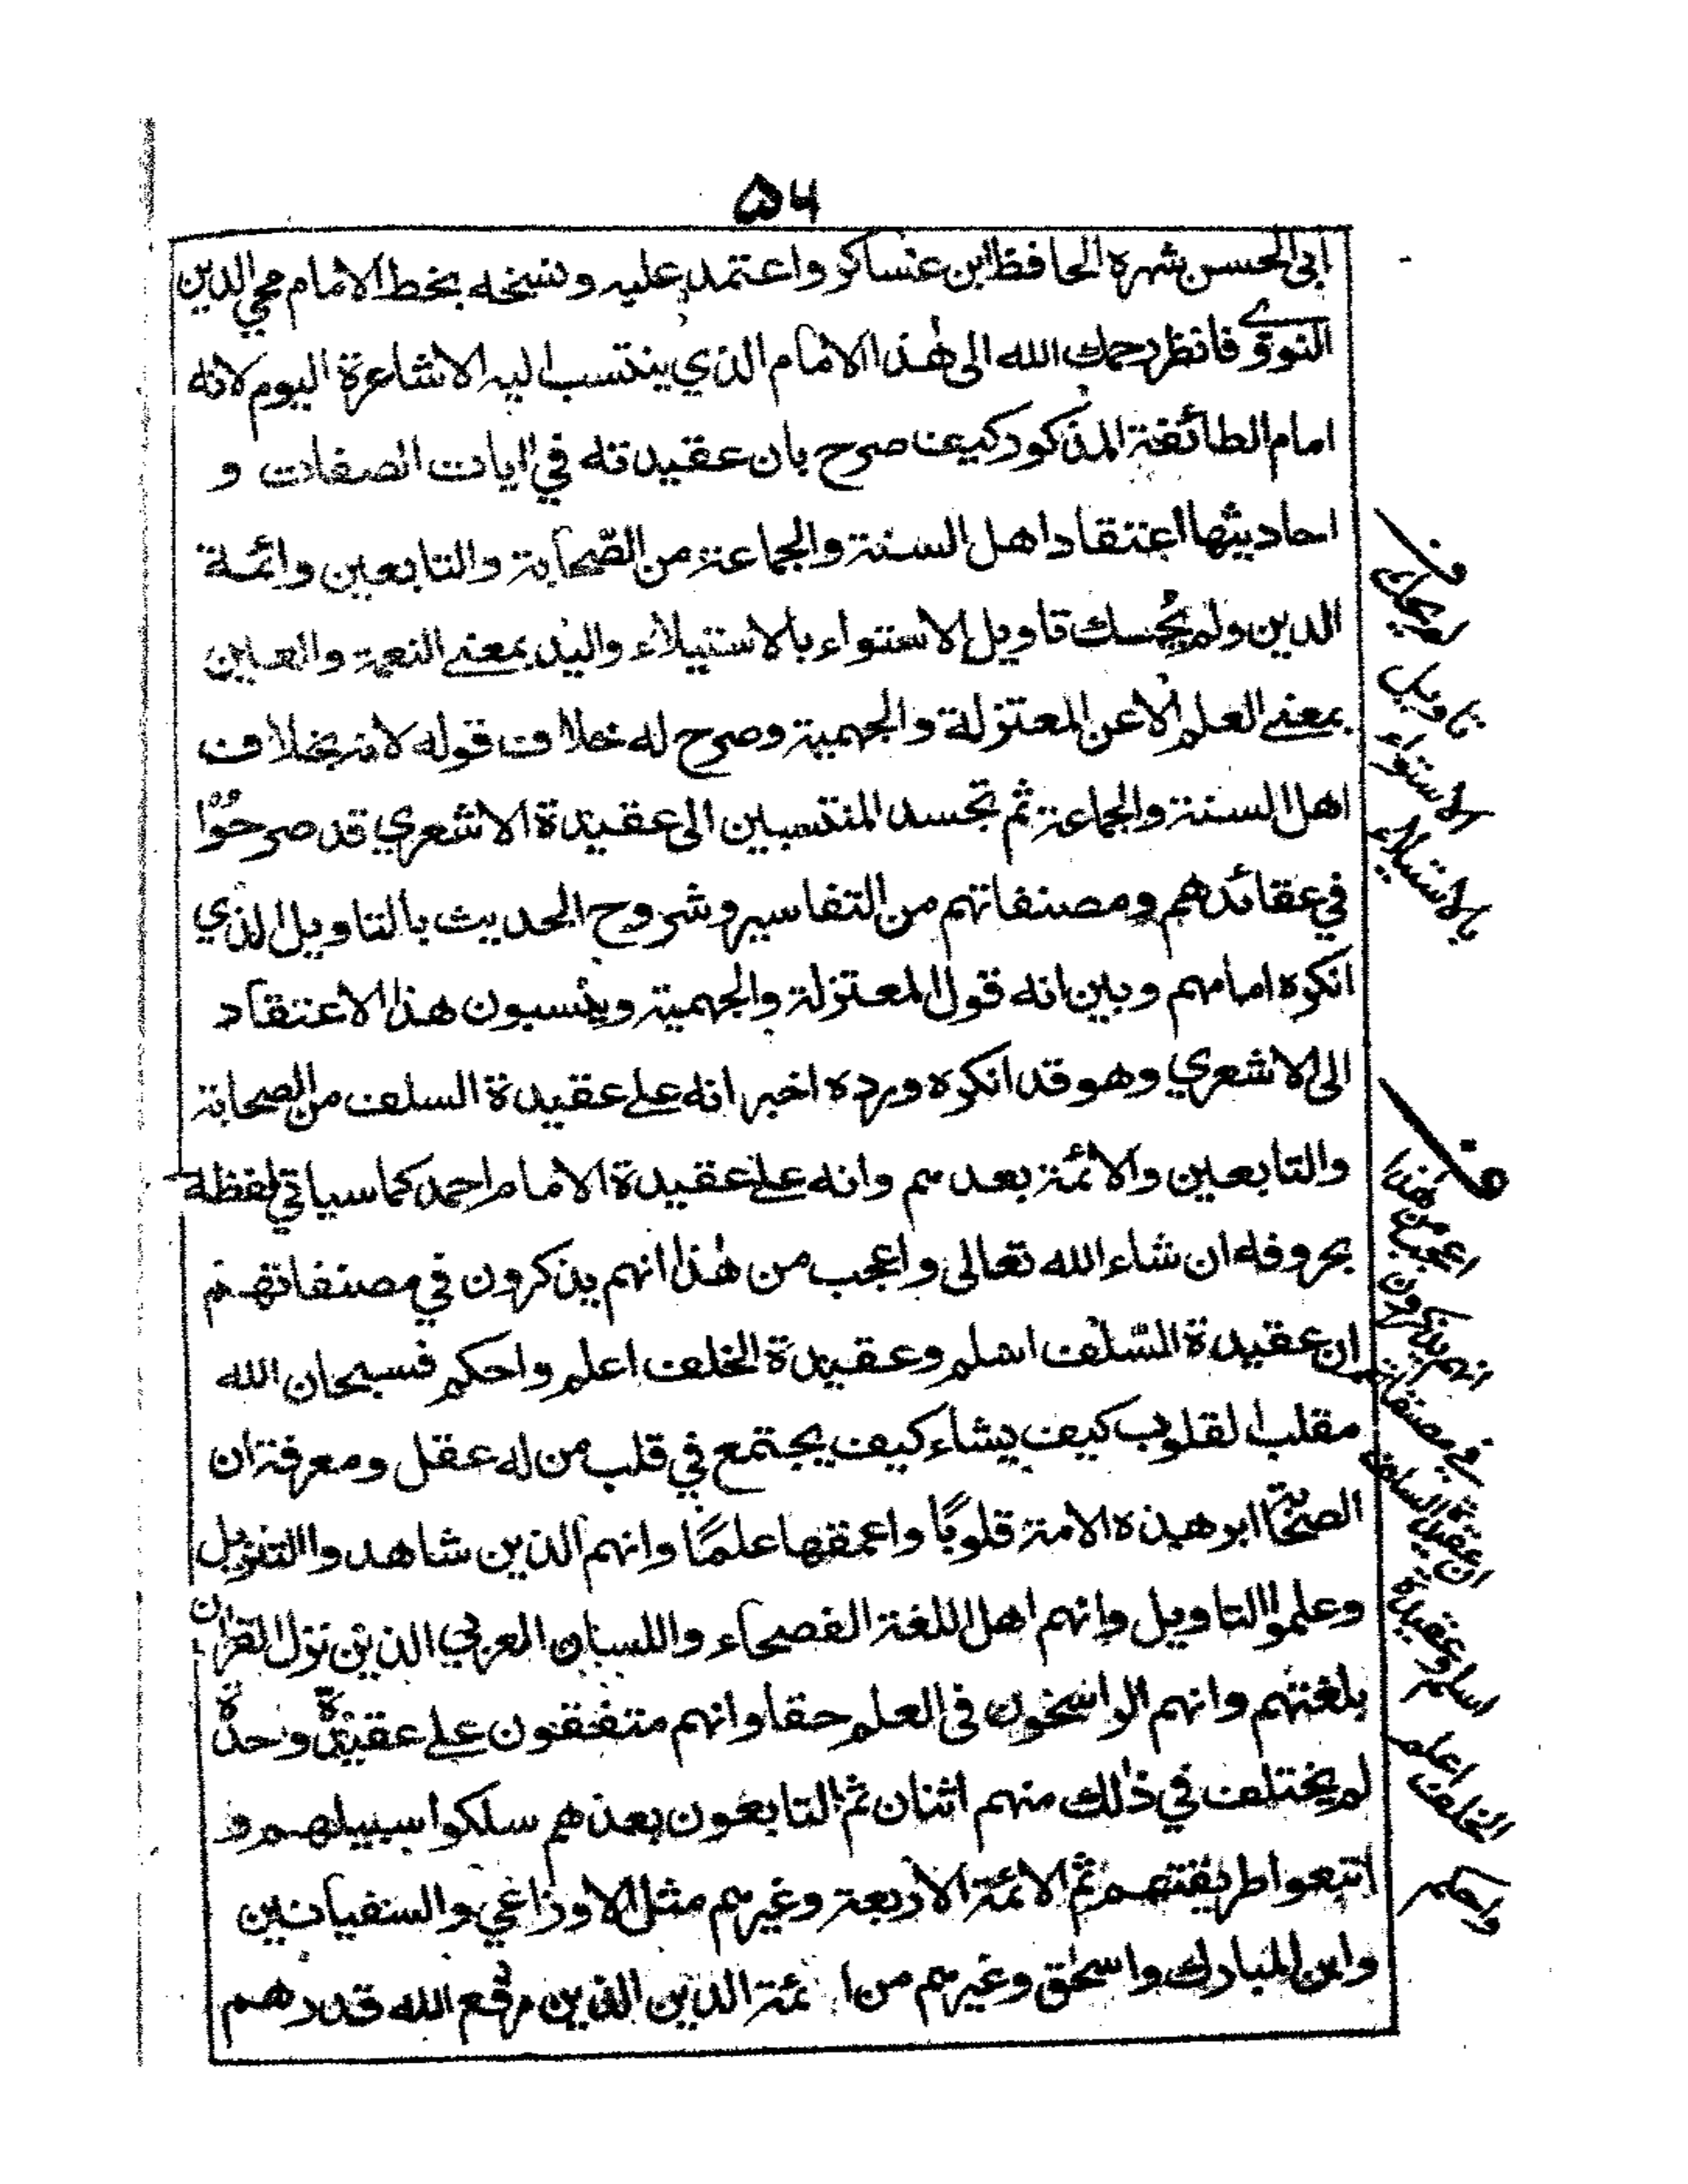 ۵۶
ابي الحسن شهره الحافظ ابن عساكر واعتمد عليه ونسخه بخط الامام محي الدين
النووي فانظر رحمك الله الى هٰذا الامام الذي ينتسب اليه الاشاعرة اليوم لانه
امام الطائفة المذكور كيف صرح بان عقيدته في ايات الصفات و
احاديثها اعتقاد اهل السنة والجماعة من الصّحابة والتابعين وائمة
الدين ولم تاويل الاستواء بالاستيلاء واليد بمعنى النعمة والعين
بمعنى العلم الا عن المعتزلة والجهمية وصرح له خلاف قوله لانه بخلاف
اهل السنة والجماعة ثم تجسد المنتسبين الى عقيدة الاشعري قد صرحوا
في عقائدهم ومصنفاتهم من التفاسير وشروح الحديث بالتاويل الذي
انكره امامهم وبين انه قول المعتزلة والجهمية وينسبون هذا الاعتقاد
الى الاشعري وهو قد انكره ورده اخبر انه على عقيدة السلف من الصحابة
والتابعين والائمة بعدهم وانه على عقيدة الامام احمد كما سياتي لفظه
بحروفه ان شاء الله تعالى واعجب من هٰذا انهم يذكرون في مصنفاتهم
ان عقيدة السّلف اسلم وعقيدة الخلف اعلم واحكم فسبحان الله
مقلب القلوب كيف يشاء كيف يجتمع في قلب من له عقل ومعرفة ان
الصحابة ابر هذه الامة قلوبًا واعمقها علمًا وانهم الذين شاهدوا التنزيل
وعلموا التاويل وانهم اهل اللغة الفصحاء واللسان العربي الذين نزل القران
بلغتهم وانهم الراسخون فى العلم حقا وانهم متفقون على عقيدة وحدة
لم يختلف في ذٰلك منهم اثنان ثم التابعون بعدهم سلكوا سبيلهم و
اتبعوا طريقتهم ثم الائمة الاربعة وغيرهم مثل الاوزاعي والسفيانين
وابن المبارك واسحٰق وغيرهم من ائمة الدين الذين رفع الله قدرهم
تاويل
الاستواء
بالاستيلاء
اعجب من هذا
انهم يذكرون
في مصنفاتهم
ان عقيدة السلف
اسلم وعقيدة
الخلف اعلم
واحكم